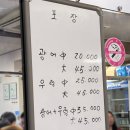 포장
광어 中 20,000
大 45,000
우럭 中 25,000
大 45,000
광어+우럭 中 35,000
大 45,000